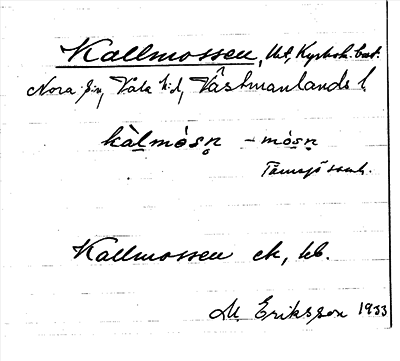 Kallmossen, Ut, Kyrkob. bost.
Nora sn, Vala hd, Västmanlands l.
kàlmòsn̥ -mòsn̥
Tärnsjö samh.
Kallmossen ek, kb.
M Eriksson 1933